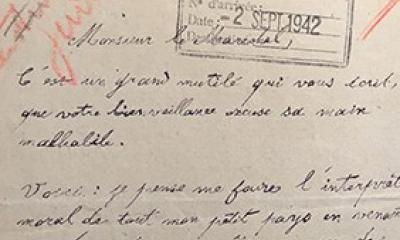 N° d'arrivée:
Date: - 2 SEPT. 1942
Monsieur le Maréchal,
C'est un grand mutilé qui vous écrit,
que votre bienveillance excuse sa main
malhabile.
Voici: je pense me faire l'interprète
moral de tout mon petit pays en venant